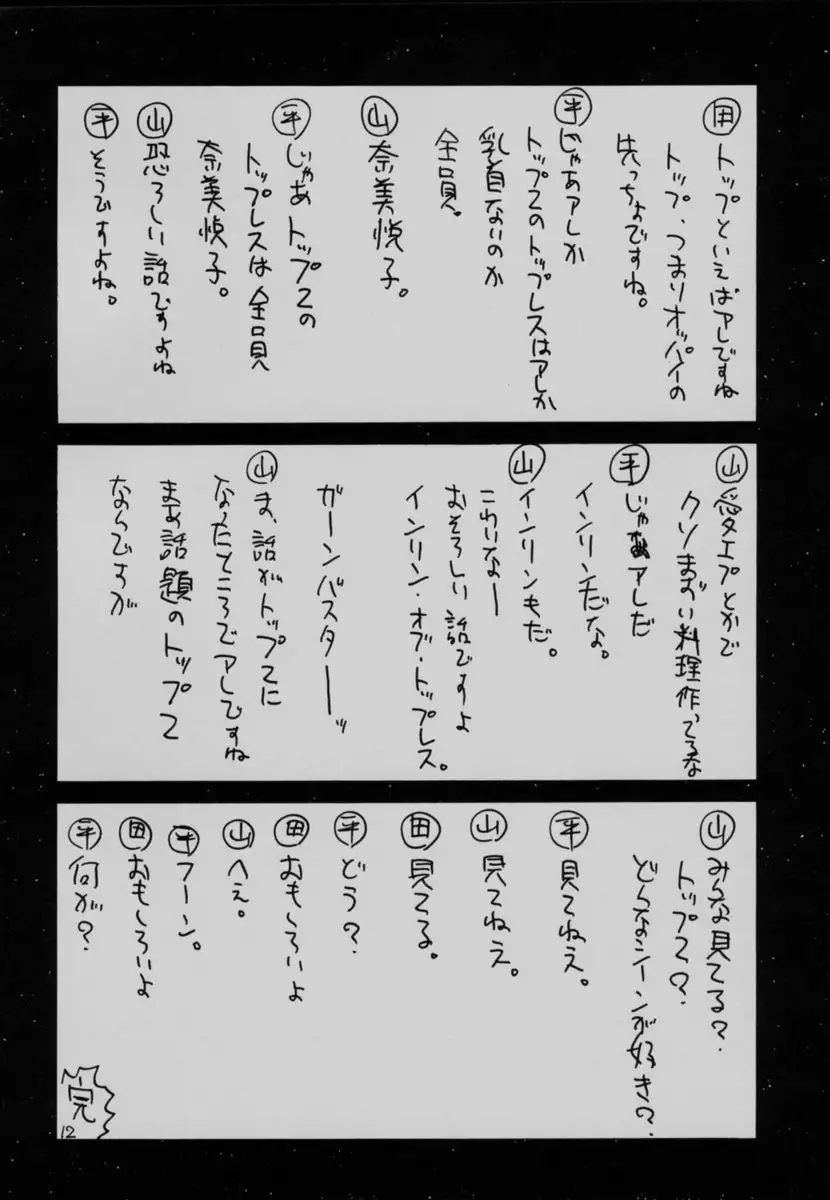 田 トップといえばアレですね
トップ、つまりオッパイの
先っちょですね。
平 じゃあアレか
トップ2のトップレスはアレか
乳首ないのか
全員。
山 奈美悦子。
平 じゃあトップ2の
トップレスは全員
奈美悦子。
山 恐ろしい話ですよね
平 そうですよね。
山 愛エプとかで
クソまずい料理作ってるな
平 じゃあアレだ
インリンだな。
山 インリンもだ。
こわいなー
おそろしい話ですよ
インリン・オブ・トップレス。
ガーンバスターーッ
山 ま、話がトップ2に
なったところでアレですね
まぁ話題のトップ2
ならですが
山 みんな見てる?
トップ2?
どんなシーンが好き?
平 見てねえ。
山 見てねえ。
田 見てる。
平 どう?
田 おもしろいよ
山 へぇ。
平 フーン。
田 おもしろいよ
平 何が?
完
12